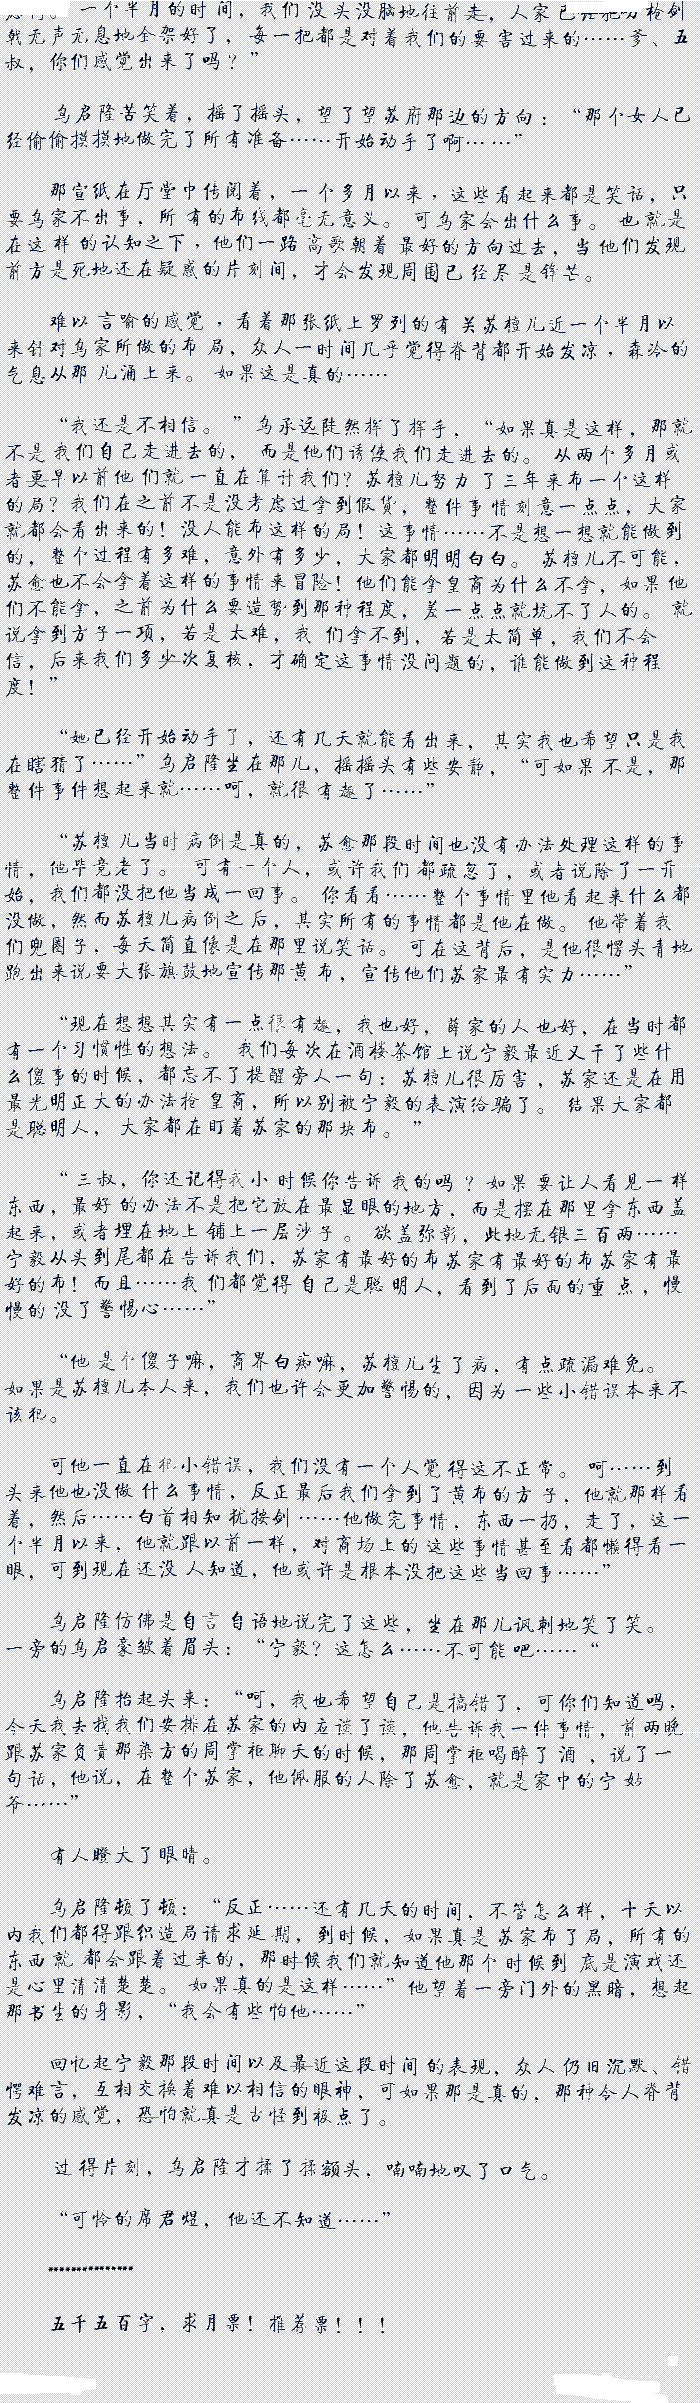 一个半月的时间，我们没头没脑地往前走，人家已
戟无声无息地全架好了，每一把都是对着我们的要害过来的……爹、五
叔，你们感觉出来了吗？”
乌启隆苦笑着，摇了摇头，望了望苏府那边的方向：“那个女人已
经偷偷摸摸地做完了所有准备……开始动手了啊……”
那宣纸在厅堂中传阅着，一个多月以来，这些看起来都是笑话，只
要乌家不出事，所有的布线都毫无意义。可乌家会出什么事。也就是
在这样的认知之下，他们一路高歌朝着最好的方向过去，当他们发现
前方是死地还在疑惑的片刻间，才会发现周围已经尽是锋芒。
难以言喻的感觉，看着那张纸上罗列的有关苏檀儿近一个半月以
来针对乌家所做的布局，众人一时间几乎觉得脊背都开始发凉，森冷的
气息从那儿涌上来。如果这是真的……
“我还是不相信。”乌承远陡然挥了挥手，“如果真是这样，那就
不是我们自己走进去的，而是他们诱使我们走进去的。从两个多月或
者更早以前他们就一直在算计我们？苏檀儿努力了三年来布一个这样
的局？我们在之前不是没考虑过拿到假货，整件事情刻意一点点，大家
就都会看出来的！没人能布这样的局！这事情……不是想一想就能做到
的，整个过程有多难，意外有多少，大家都明明白白。苏檀儿不可能，
苏愈也不会拿着这样的事情来冒险！他们能拿皇商为什么不拿，如果他
们不能拿，之前为什么要造势到那种程度，差一点点就坑不了人的。就
说拿到方子一项，若是太难，我们拿不到，若是太简单，我们不会
信，后来我们多少次复核，才确定这事情没问题的，谁能做到这种程
度！”
“她已经开始动手了，还有几天就能看出来，其实我也希望只是我
在瞎猜了……”乌启隆坐在那儿，摇摇头有些安静，“可如果不是，那
整件事件想起来就……呵，就很有趣了……”
“苏檀儿当时病倒是真的，苏愈那段时间也没有办法处理这样的事
情，他毕竟老了。可有一个人，或许我们都疏忽了，或者说除了一开
始，我们都没把他当成一回事。你看看……整个事情里他看起来什么都
没做，然而苏檀儿病倒之后，其实所有的事情都是他在做。他带着我
们兜圈子，每天简直像是在那里说笑话。可在这背后，是他很愣头青地
跑出来说要大张旗鼓地宣传那黄布，宣传他们苏家最有实力……”
“现在想想其实有一点很有趣，我也好，薛家的人也好，在当时都
有一个习惯性的想法。我们每次在酒楼茶馆上说宁毅最近又干了些什
么傻事的时候，都忘不了提醒旁人一句：苏檀儿很厉害，苏家还是在用
最光明正大的办法抢皇商，所以别被宁毅的表演给骗了。结果大家都
是聪明人，大家都在盯着苏家的那块布。”
“三叔，你还记得我小时候你告诉我的吗？如果要让人看见一样
东西，最好的办法不是把它放在最显眼的地方，而是摆在那里拿东西盖
起来，或者埋在地上铺上一层沙子。欲盖弥彰，此地无银三百两……
宁毅从头到尾都在告诉我们，苏家有最好的布苏家有最好的布苏家有最
好的布！而且……我们都觉得自己是聪明人，看到了后面的重点，慢
慢的没了警惕心……”
“他是个傻子嘛，商界白痴嘛，苏檀儿生了病，有点疏漏难免。
如果是苏檀儿本人来，我们也许会更加警惕的，因为一些小错误本来不
该犯。
可他一直在犯小错误，我们没有一个人觉得这不正常。呵……到
头来他也没做什么事情，反正最后我们拿到了黄布的方子，他就那样看
着，然后……白首相知犹按剑……他做完事情，东西一扔，走了，这一
个半月以来，他就跟以前一样，对商场上的这些事情甚至看都懒得看一
眼，可到现在还没人知道，他或许是根本没把这些当回事……”
乌启隆仿佛是自言自语地说完了这些，坐在那儿讽刺地笑了笑。
一旁的乌启豪皱着眉头：“宁毅？这怎么……不可能吧……“
乌启隆抬起头来：“呵，我也希望自己是搞错了，可你们知道吗，
今天我去找我们安排在苏家的内应谈了谈，他告诉我一件事情，前两晚
跟苏家负责那染方的周掌柜聊天的时候，那周掌柜喝醉了酒，说了一
句话，他说，在整个苏家，他佩服的人除了苏愈，就是家中的宁姑
爷……”
有人瞪大了眼睛。
乌启隆顿了顿：“反正……还有几天的时间，不管怎么样，十天以
内我们都得跟织造局请求延期，到时候，如果真是苏家布了局，所有的
东西就都会跟着过来的，那时候我们就知道他那个时候到底是演戏还
是心里清清楚楚。如果真的是这样……”他望着一旁门外的黑暗，想起
那书生的身影，“我会有些怕他……”
回忆起宁毅那段时间以及最近这段时间的表现，众人仍旧沉默、错
愕难言，互相交换着难以相信的眼神，可如果那是真的，那种令人脊背
发凉的感觉，恐怕就真是古怪到极点了。
过得片刻，乌启隆才揉了揉额头，喃喃地叹了口气。
“可怜的席君煜，他还不知道……”
***************
五千五百字，求月票！推荐票！！！